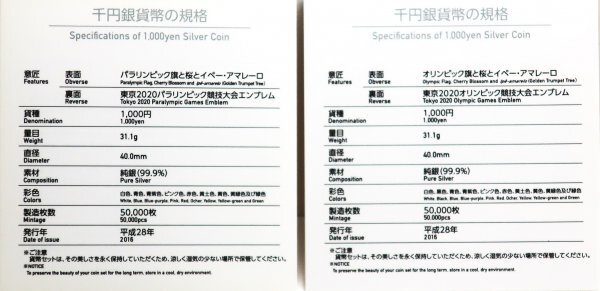 千円銀貨幣の規格
Specifications of 1,000yen Silver Coin
意匠 表面 パラリンピック旗と桜とイペー・アマレーロ
Features Obverse Paralympic Flag, Cherry Blossom and ipê-amarelo (Golden Trumpet Tree)
裏面 東京2020パラリンピック競技大会エンブレム
Reverse Tokyo 2020 Paralympic Games Emblem
貨種 1,000円
Denomination 1,000yen
量目 31.1g
Weight
直径 40.0mm
Diameter
素材 純銀(99.9%)
Composition Pure Silver
彩色 白色、青色、青紫色、ピンク色、赤色、黄土色、黄色、黄緑色及び緑色
Colors White, Blue, Blue-purple, Pink, Red, Ocher, Yellow, Yellow-green and Green
製造枚数 50,000枚
Mintage 50,000pcs
発行年 平成28年
Date of issue 2016
※ご注意
貨幣セットは、その美しさを永く保持していただくため、涼しく湿気の少ない場所で保管してください。
※NOTICE
To preserve the beauty of your coin set for the long term, store in a cool, dry environment.
千円銀貨幣の規格
Specifications of 1,000yen Silver Coin
意匠 表面 オリンピック旗と桜とイペー・アマレーロ
Features Obverse Olympic Flag, Cherry Blossom and ipê-amarelo (Golden Trumpet Tree)
裏面 東京2020オリンピック競技大会エンブレム
Reverse Tokyo 2020 Olympic Games Emblem
貨種 1,000円
Denomination 1,000yen
量目 31.1g
Weight
直径 40.0mm
Diameter
素材 純銀(99.9%)
Composition Pure Silver
彩色 白色、黒色、青色、青紫色、ピンク色、赤色、黄土色、黄色、黄緑色及び緑色
Colors White, Black, Blue, Blue-purple, Pink, Red, Ocher, Yellow, Yellow-green and Green
製造枚数 50,000枚
Mintage 50,000pcs
発行年 平成28年
Date of issue 2016
※ご注意
貨幣セットは、その美しさを永く保持していただくため、涼しく湿気の少ない場所で保管してください。
※NOTICE
To preserve the beauty of your coin set for the long term, store in a cool, dry environment.